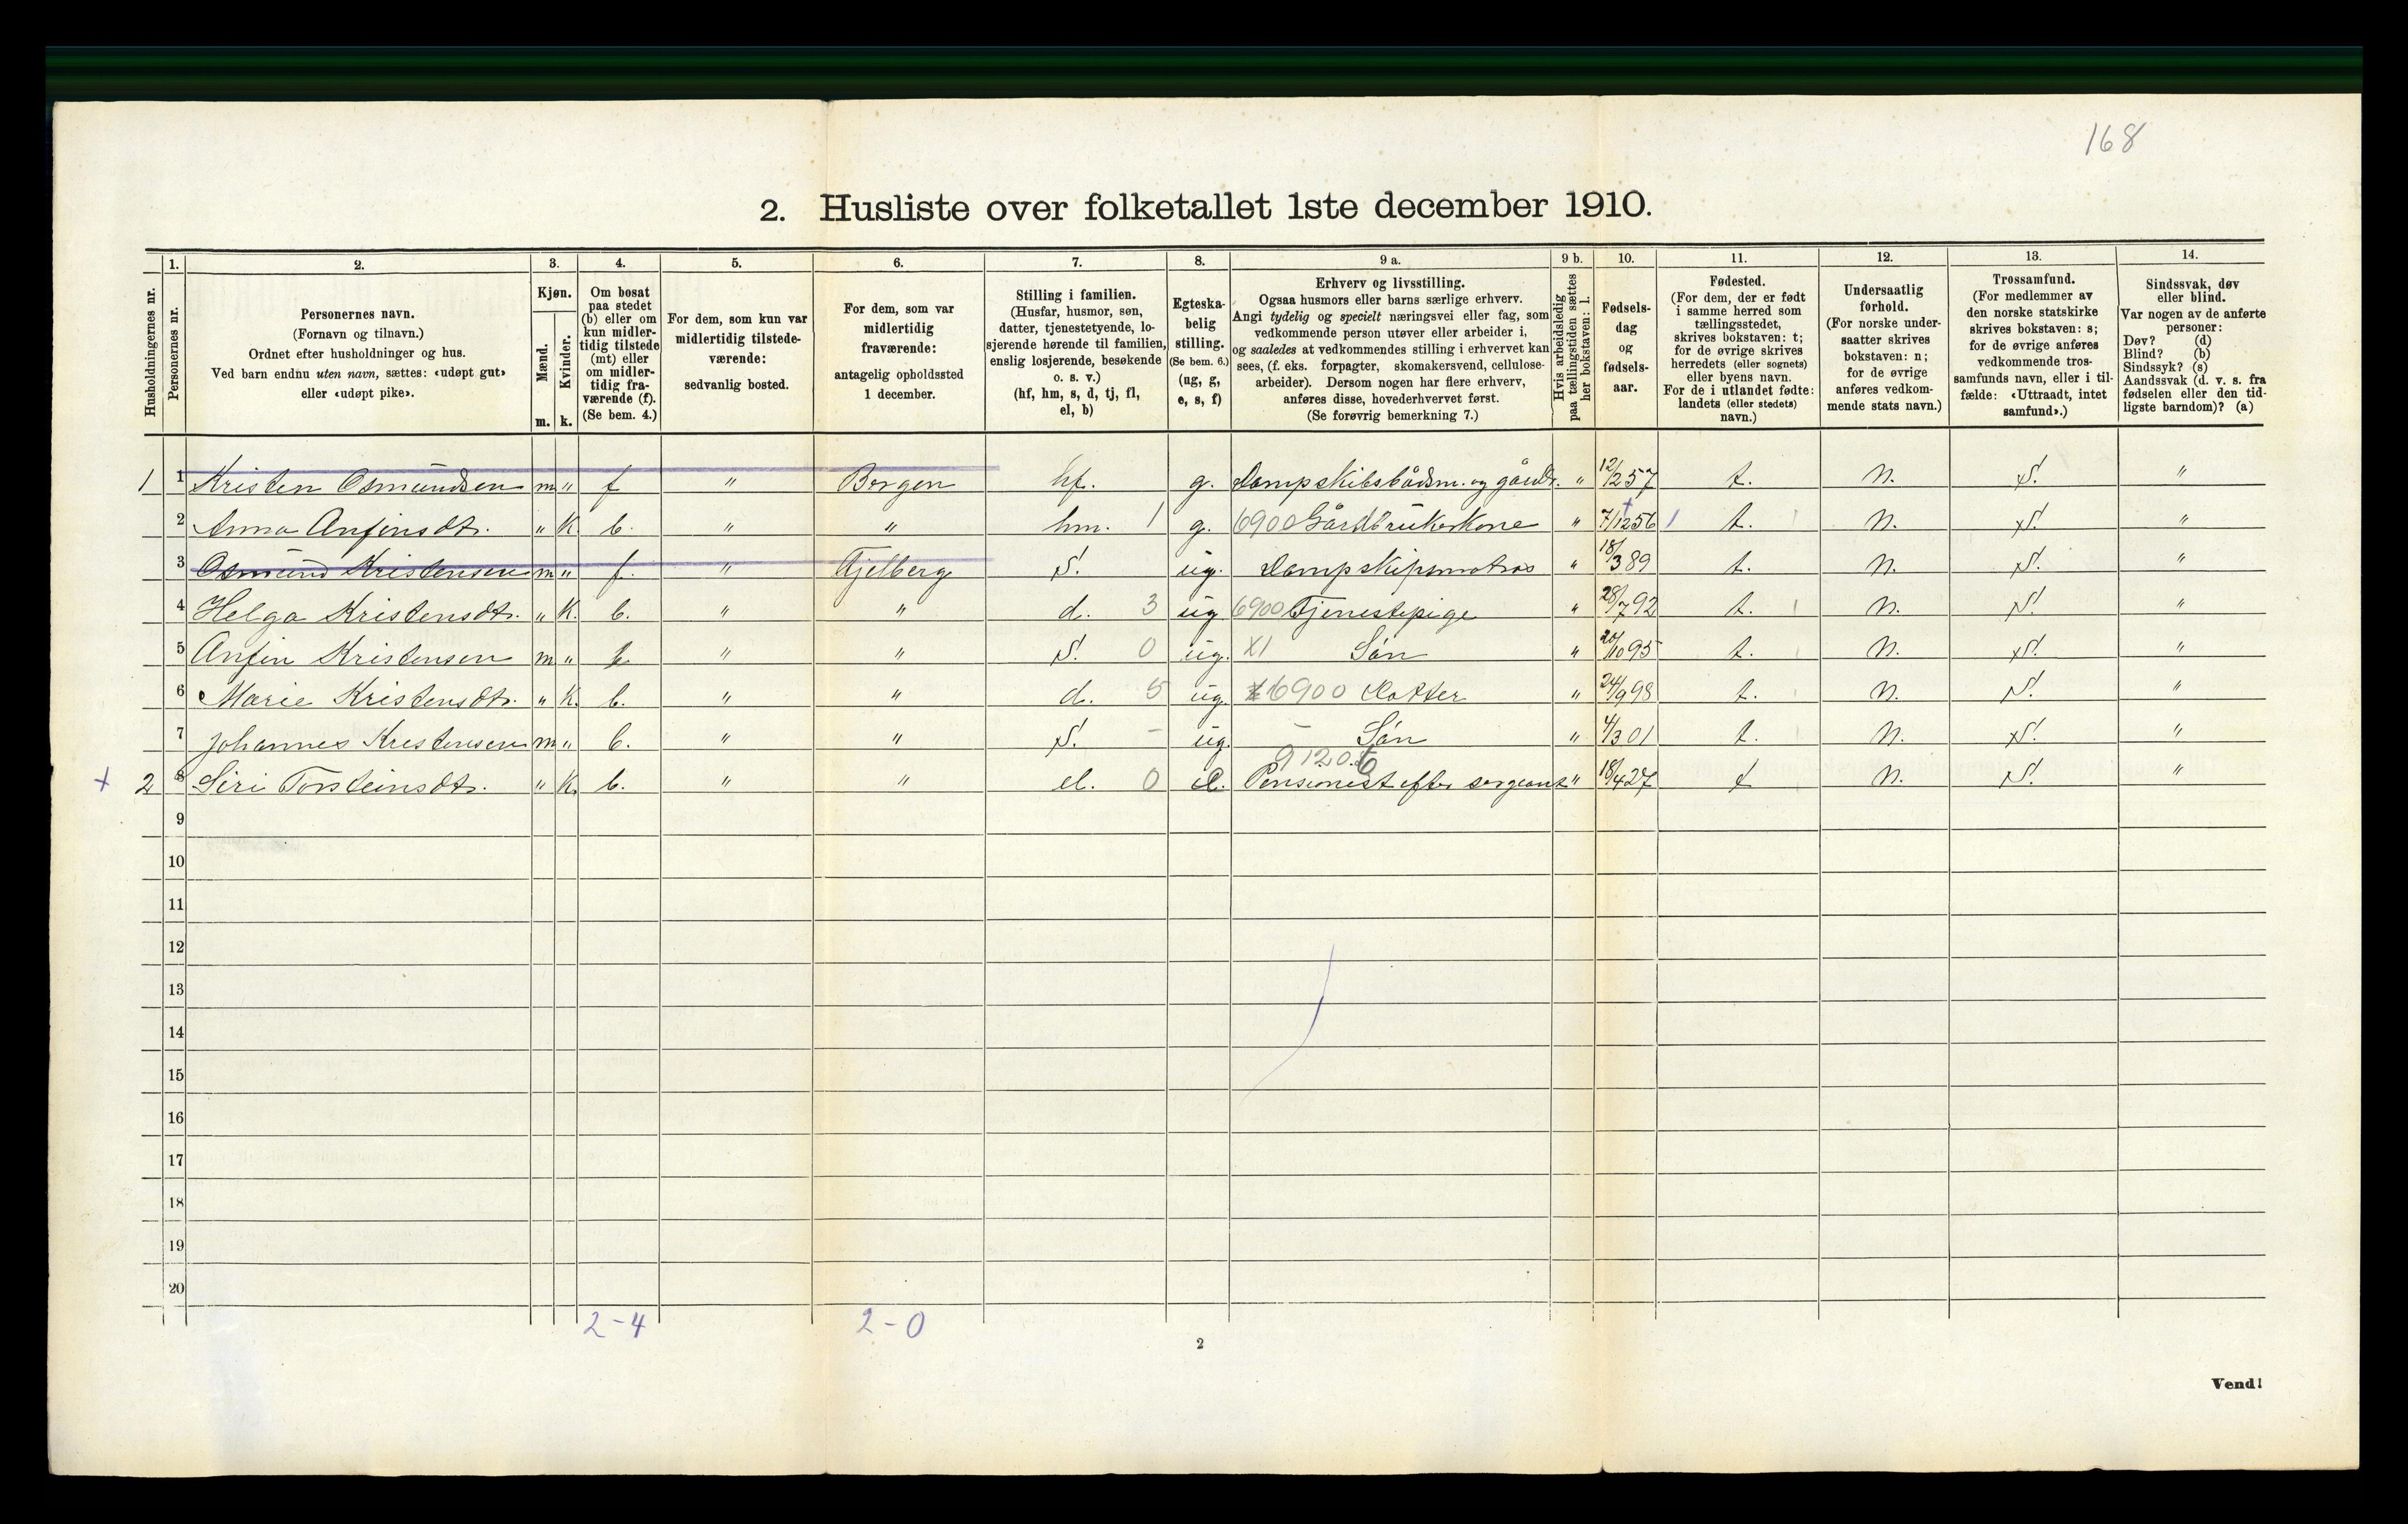 168
2. Husliste over folketallet 1ste december 1910.
Husholdningernes nr.
1.
Personernes nr.
2.
Personernes navn.
(Fornavn og tilnavn.)
Ordnet efter husholdninger og hus.
Ved barn endnu uten navn, sættes: «udøpt gut»
eller «udøpt pike».
3.
Kjøn.
Mænd.
m.
Kvinder.
k.
4.
Om bosat
paa stedet
(b) eller om
kun midler-
tidig tilstede
(mt) eller
om midler-
tidig fra-
værende (f).
(Se bem. 4.)
5.
For dem, som kun var
midlertidig tilstede-
værende:
sedvanlig bosted.
6.
For dem, som var
midlertidig
fraværende:
antagelig opholdssted
1 december.
7.
Stilling i familien.
(Husfar, husmor, søn,
datter, tjenestetyende, lo-
sjerende hørende til familien,
enslig losjerende, besøkende
o. s. v.)
(hf, hm, s, d, tj, fl,
el, b)
8.
Egteska-
belig
stilling.
(Se bem. 6.)
(ug, g,
e, s, f)
9 a.
Erhverv og livsstilling.
Ogsaa husmors eller barns særlige erhverv.
Angi tydelig og specielt næringsvei eller fag, som
vedkommende person utøver eller arbeider i,
og saaledes at vedkommendes stilling i erhvervet kan
sees, (f. eks. forpagter, skomakersvend, cellulose-
arbeider). Dersom nogen har flere erhverv,
anføres disse, hovederhvervet først.
(Se forøvrig bemerkning 7.)
9 b.
Hvis arbeidsledig
paa tællingstiden sættes
her bokstaven: l.
10.
Fødsels-
dag
og
fødsels-
aar.
11.
Fødested.
(For dem, der er født
i samme herred som
tællingsstedet,
skrives bokstaven: t;
for de øvrige skrives
herredets (eller sognets)
eller byens navn.
For de i utlandet fødte:
landets (eller stedets)
navn.)
12.
Undersaatlig
forhold.
(For norske under-
saatter skrives
bokstaven: n;
for de øvrige
anføres vedkom-
mende stats navn.)
13.
Trossamfund.
(For medlemmer av
den norske statskirke
skrives bokstaven: s;
for de øvrige anføres
vedkommende tros-
samfunds navn, eller i til-
fælde: «Uttraadt, intet
samfund».)
14.
Sindssvak, døv
eller blind.
Var nogen av de anførte
personer:
Døv? (d)
Blind? (b)
Sindssyk? (s)
Aandssvak (d. v. s. fra
fødselen eller den tid-
ligste barndom)? (a)
1 1 Kristen Osmundsen m " f " Bergen hf. g. Dampskibsbådsm. og gårdb. " 12/2 57 t. n. s. "
2 Anna Anfinsdtr. " k. b. " " hm. 1 g. 6900 Gårdbrukerkone " 7/12 56 t. n. s. "
3 Osmund Kristensen m " f. " Fjelberg s. ug. Dampskipsmatros " 18/3 89 t. n. s. "
4 Helga Kristensdtr. " k. b. " " d. 3 ug 6900 Tjenestepige " 28/7 92 t. n. s. "
5 Anfin Kristensen m " b " " s. 0 ug. X1 Sön " 20/10 95 t. n. s. "
6 Marie Kristensdtr. " k. b. " " d. 5 ug. 6900 Datter " 24/9 98 t. n. s. "
7 Johannes Kristensen m " b. " " s. - ug. - Sön " 4/3 01 t. n. s. "
9120.6
+ 2 8 Siri Torsteinsdtr. " k. b. " " el. 0 e. Pensionist efter sergeant " 18/4 27 t n. s. "
9
10
11
12
13
14
15
16
17
18
19
20
2-4 2-0
2
Vend!